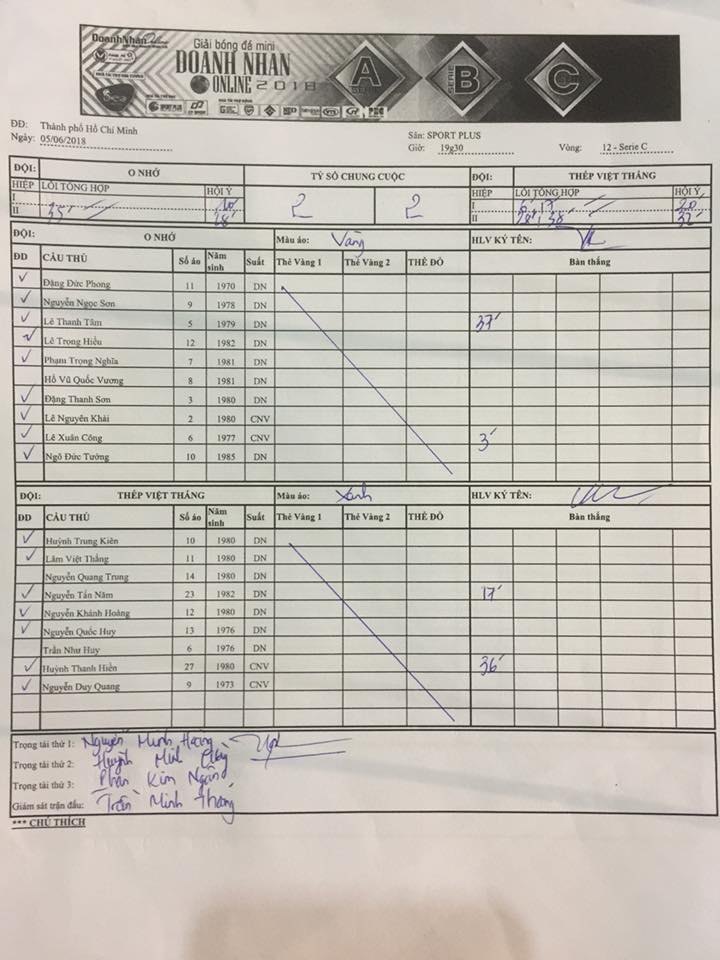 DoanhNhân
NHÀ TÀI TRỢ KIM CƯƠNG
Giải bóng đá mini
DOANH NHÂN
ONLINE 2018
A SERIE
SERIE B
C SERIE
SPORT PLUS
ĐĐ: Thành phố Hồ Chí Minh Sân: SPORT PLUS
Ngày: 05/06/2018 Giờ: 19g30 Vòng: 12 - Serie C
ĐỘI: O NHỚ TỶ SỐ CHUNG CUỘC ĐỘI: THÉP VIỆT THẮNG
HIỆP LỖI TỔNG HỢP HỘI Ý 2 2 HIỆP LỖI TỔNG HỢP HỘI Ý
I 10' I 6', 17' 20'
II 35' 28' II 28', 38' 32'
ĐỘI: O NHỚ Màu áo: Vàng HLV KÝ TÊN:
ĐD CẦU THỦ Số áo Năm sinh Suất Thẻ Vàng 1 Thẻ Vàng 2 THẺ ĐỎ Bàn thắng
✓ Đặng Đức Phong 11 1970 DN
✓ Nguyễn Ngọc Sơn 9 1978 DN
✓ Lê Thanh Tâm 5 1979 DN 37'
✓ Lê Trọng Hiếu 12 1982 DN
✓ Phạm Trọng Nghĩa 7 1981 DN
Hồ Vũ Quốc Vương 8 1981 DN
✓ Đặng Thanh Sơn 3 1980 DN
✓ Lê Nguyên Khải 2 1980 CNV
✓ Lê Xuân Công 6 1977 CNV 3'
✓ Ngô Đức Tưởng 10 1985 DN
ĐỘI: THÉP VIỆT THẮNG Màu áo: Xanh HLV KÝ TÊN:
ĐD CẦU THỦ Số áo Năm sinh Suất Thẻ Vàng 1 Thẻ Vàng 2 THẺ ĐỎ Bàn thắng
✓ Huỳnh Trung Kiên 10 1980 DN
✓ Lâm Việt Thắng 11 1980 DN
Nguyễn Quang Trung 14 1980 DN
✓ Nguyễn Tấn Năm 23 1982 DN 17'
✓ Nguyễn Khánh Hoàng 12 1980 DN
✓ Nguyễn Quốc Huy 13 1976 DN
Trần Như Huy 6 1976 DN
✓ Huỳnh Thanh Hiền 27 1980 CNV 36'
✓ Nguyễn Duy Quang 9 1973 CNV
Trọng tài thứ 1: Nguyễn Minh Hoàng
Trọng tài thứ 2: Huỳnh Minh
Trọng tài thứ 3: Phan Kim Ngân
Giám sát trận đấu: Trần Minh Thắng
*** CHÚ THÍCH